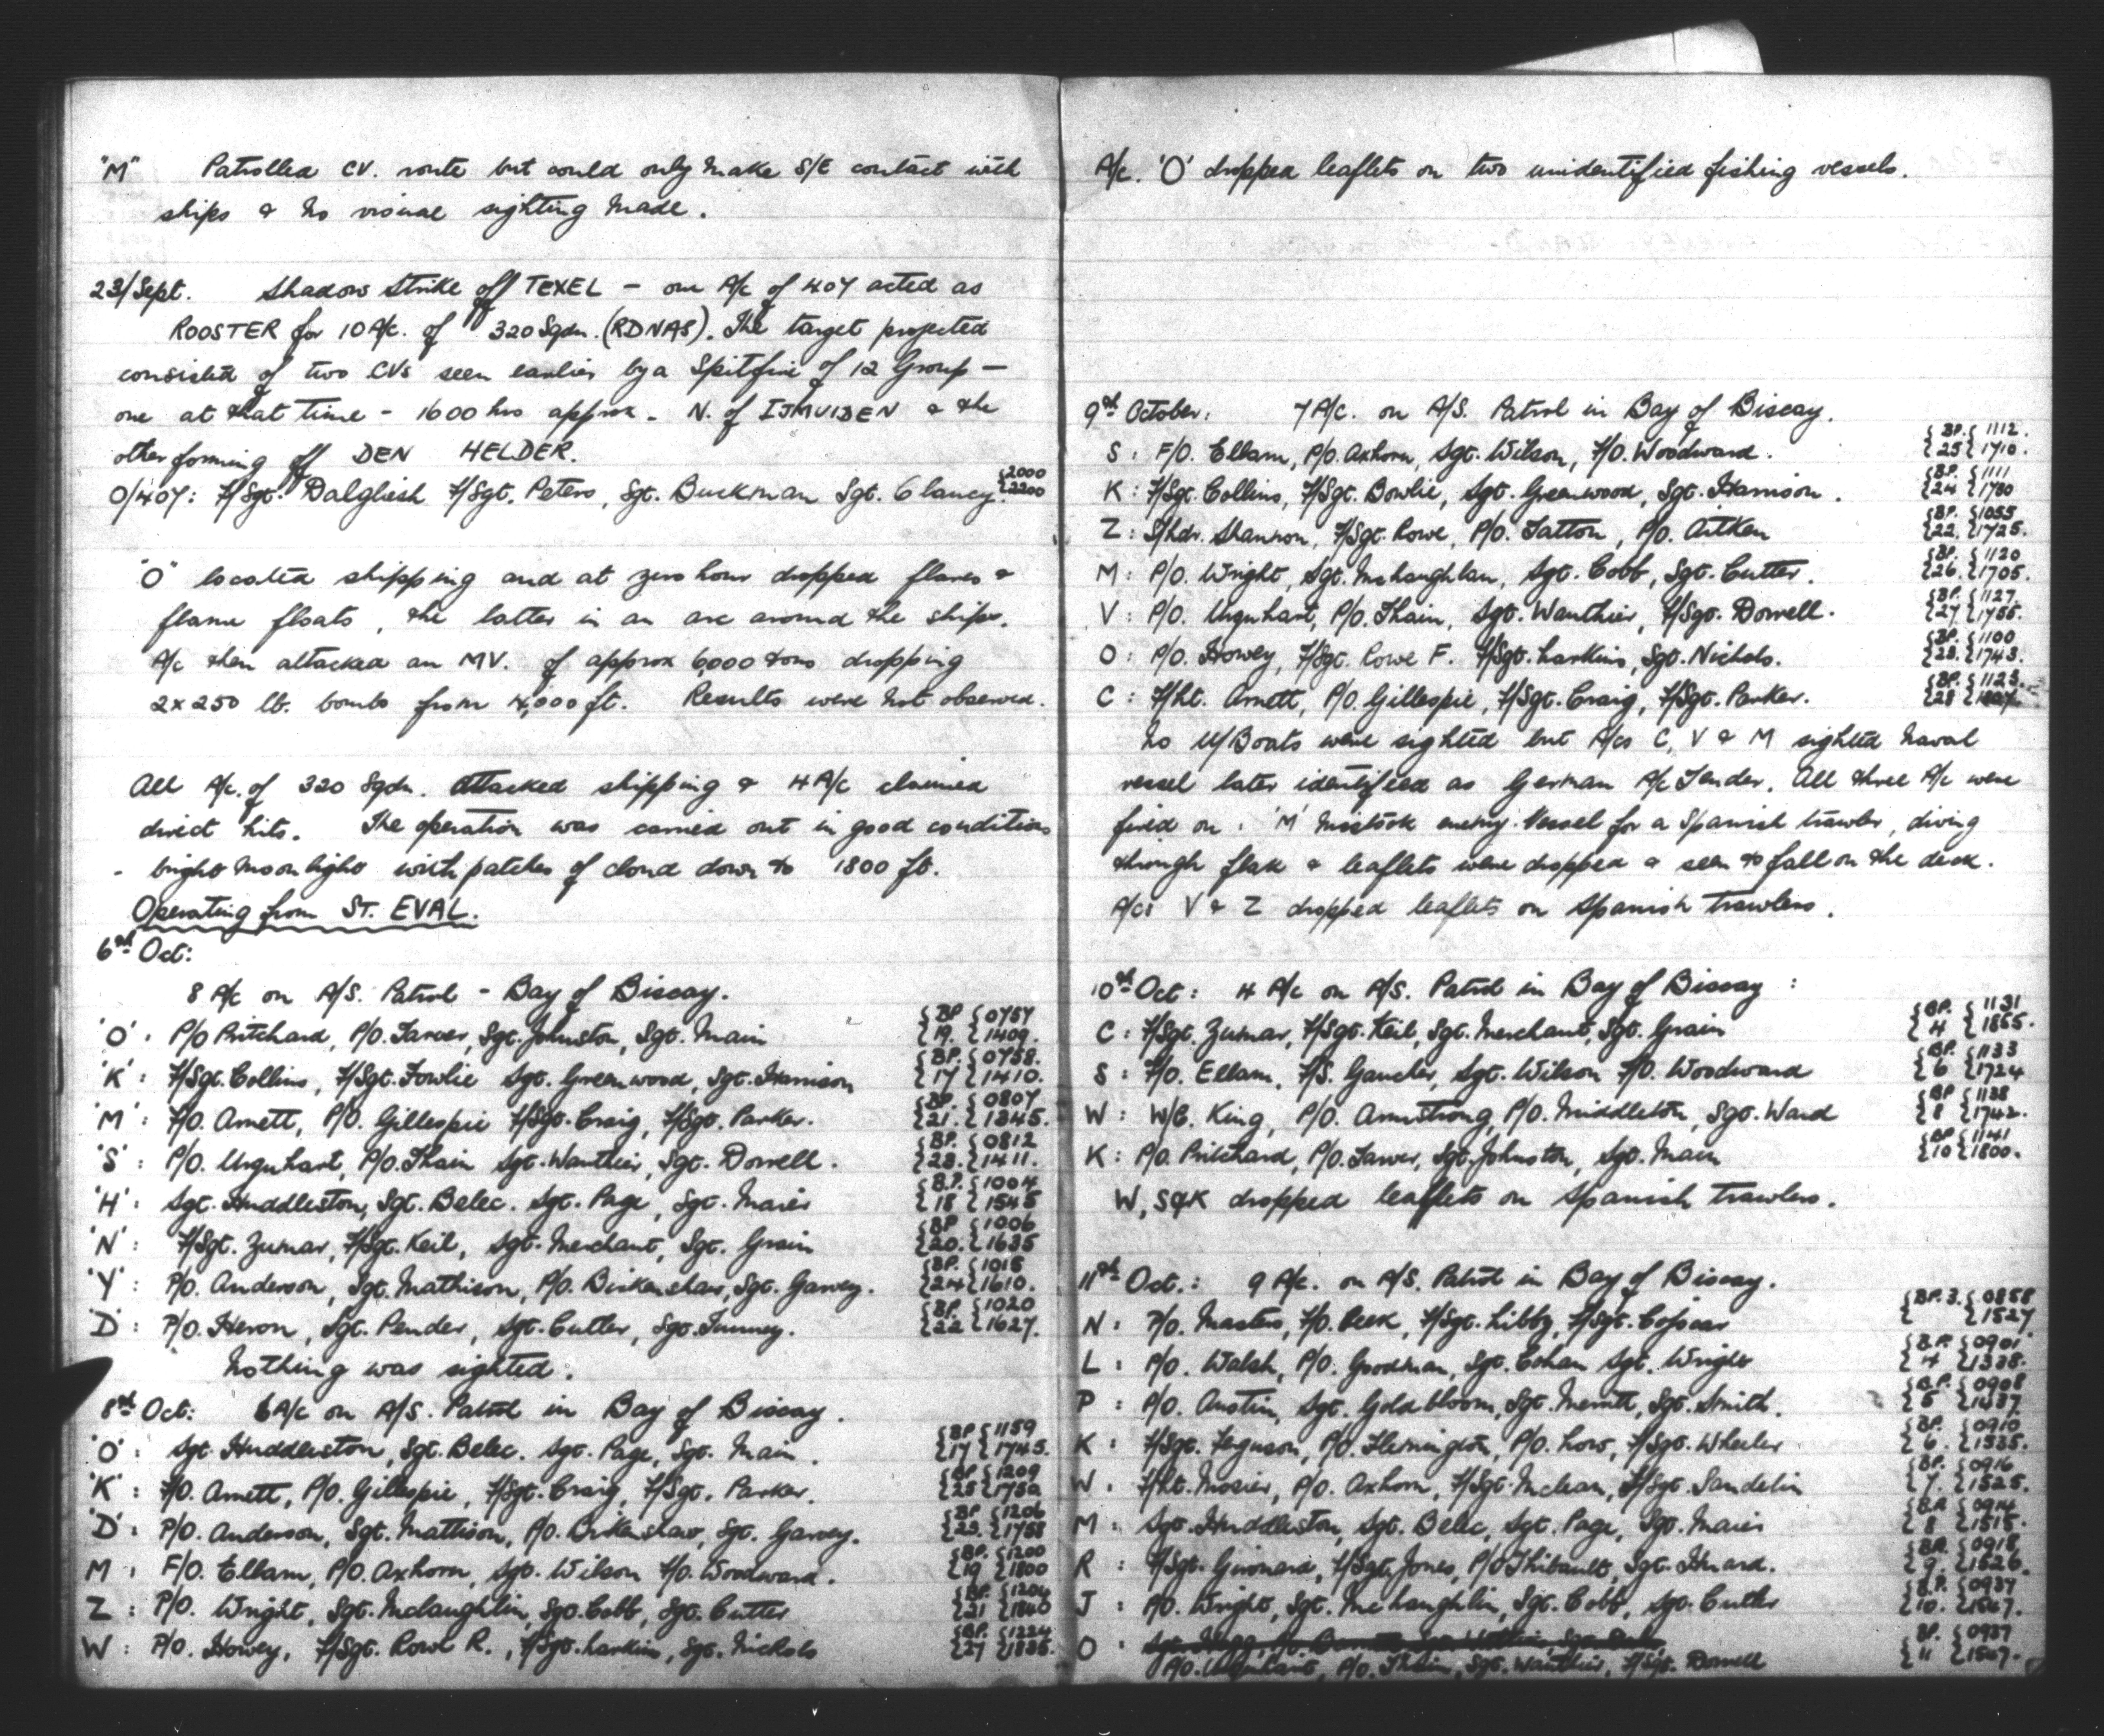 "M" Patrolled CV. route but could only make S/E contact with
ships & no visual sighting made.
23/Sept. Shadow Strike off TEXEL — one A/c of 407 acted as
ROOSTER for 10 A/c. of 320 Sqdn. (RDNAS). The target projected
consisted of two CVs seen earlier by a Spitfire of 12 Group —
one at that time - 1600 hrs approx. N. of IJMUIDEN & the
other forming off DEN HELDER.
O/407: F/Sgt. Dalgliesh F/Sgt. Peters, Sgt. Buckman Sgt. Clancy. {2000 {2200
"O" located shipping and at zero hour dropped flares &
flame floats, the latter in an arc around the ships.
A/c then attacked an MV. of approx 6,000 tons dropping
2x250 lb. bombs from 4,000 ft. Results were not observed.
All A/c. of 320 Sqdn. attacked shipping & 4 A/c claimed
direct hits. The operation was carried out in good conditions
- bright moonlight with patches of cloud down to 1800 ft.
Operating from ST. EVAL.
6th Oct:
8 A/c on A/S. Patrol - Bay of Biscay.
'O': P/O Pritchard, P/O. Tarver, Sgt. Johnston, Sgt. Main {BP 19. {0757 1409.
'K': F/Sgt. Collins, F/Sgt. Fowlie Sgt. Greenwood, Sgt. Harrison {BP. 17 {0758. 1410.
'M': F/O. Arnett, P/O. Gillespie F/Sgt. Craig, F/Sgt. Parker. {BP. 21. {0807 1345.
'S': P/O. Urquhart, P/O. Thain Sgt. Wauthier, Sgt. Dorrell. {BP. 23. {0812 1411.
'H': Sgt. Huddleston, Sgt. Belec. Sgt. Page, Sgt. Maier {B.P. 18 {1004 1545
'N': F/Sgt. Zumar, F/Sgt. Keil, Sgt. Merchant, Sgt. Grain {BP 20. {1006 1635
'Y': P/O. Anderson, Sgt. Mathison, P/O. Birkenshaw, Sgt. Garvey. {BP. 24 {1015 1610.
'D': P/O. Heron, Sgt. Pender, Sgt. Cutler, Sgt. Tunney. {BP. 22 {1020 1627.
Nothing was sighted.
8th Oct: 6 A/c on A/S. Patrol in Bay of Biscay.
'O': Sgt. Huddleston, Sgt. Belec. Sgt. Page, Sgt. Main. {BP 17 {1159 1745.
'K': F/O. Arnett, P/O. Gillespie, F/Sgt. Craig, F/Sgt. Parker. {BP 25 {1209
'D': P/O. Anderson, Sgt. Mattison, P/O. Birkenshaw, Sgt. Garvey. {BP 23. {1206 1758
M: F/O. Ellam, P/O. Axhorn, Sgt. Wilson F/O. Woodward. {BP. 19 {1200 1800
Z: P/O. Wright, Sgt. McLaughlin, Sgt. Cobb, Sgt. Cutter {BP. 21 {1204 1840
W: P/O. Howey, F/Sgt. Rowe R., F/Sgt. Larkins, Sgt. Nichols {BP. 27 {1224 1835.
A/c. 'O' dropped leaflets on two unidentified fishing vessels.
9th October: 7 A/c. on A/S. Patrol in Bay of Biscay.
S: F/O. Ellam, P/O. Axhorn, Sgt. Wilson, F/O. Woodward. {BP. 25 {1112. 1710.
K: F/Sgt. Collins, F/Sgt. Bowlie, Sgt. Greenwood, Sgt. Harrison. {BP. 24 {1111
Z: S/Ldr. Shannon, F/Sgt. Rowe, P/O. Tatton, P/O. Aitken {BP. 22. {1055 1725.
M: P/O. Wright, Sgt. McLaughlan, Sgt. Cobb, Sgt. Cutter. {BP. 26. {1120 1705.
V: P/O. Urquhart, P/O. Thain, Sgt. Wauthier, F/Sgt. Dorrell. {BP. 27 {1127. 1755.
O: P/O. Howey, F/Sgt. Rowe F. F/Sgt. Larkins, Sgt. Nichols. {BP. 23. {1100 1743.
C: F/Lt. Arnett, P/O. Gillespie, F/Sgt. Craig, F/Sgt. Parker. {BP. 28 {1123.
No U/Boats were sighted but A/cs C, V & M sighted naval
vessel later identified as German A/c Tender. All three A/c were
fired on. 'M' mistook enemy vessel for a Spanish trawler, diving
through flak & leaflets were dropped & seen to fall on the deck.
A/cs V & Z dropped leaflets on Spanish trawlers.
10th Oct: 4 A/c on A/S. Patrol in Bay of Biscay:
C: F/Sgt. Zumar, F/Sgt. Keil, Sgt. Merchant, Sgt. Grain {BP. 4 {1131 1855.
S: F/O. Ellam, F/S. Gaucher, Sgt. Wilson F/O. Woodward {BP. 6 {1133 1724
W: W/C. King, P/O. Armstrong, P/O. Middleton, Sgt. Ward {BP 8 {1138 1742.
K: P/O. Pritchard, P/O. Tarver, Sgt. Johnston, Sgt. Main {BP 10 {1141 1800.
W, S&K dropped leaflets on Spanish trawlers.
11th Oct.: 9 A/c. on A/S. Patrol in Bay of Biscay.
N: P/O. Masters, F/O. Peek, F/Sgt. Libby, F/Sgt. {BP. 3. {0858 1527
L: P/O. Walsh, P/O. Goodman, Sgt. Cohan Sgt. Wright {BP. 4 {0901 1338.
P: P/O. Austin, Sgt. Goldbloom, Sgt. Merritt, Sgt. Smith. {BP. 5 {0908 1437
K: F/Sgt. Ferguson, P/O. Flemington, P/O. Low, F/Sgt. Wheeler {BP. 6. {0910 1535.
W. F/Lt. Mosier, P/O. Axhorn, F/Sgt. Mclean, F/Sgt. Sandelin {BP. 7. {0916 1525.
M: Sgt. Huddleston, Sgt. Belec, Sgt. Page, Sgt. Maier {BP. 8 {0914 1515.
R: F/Sgt. Guimard, F/Sgt. Jones, P/O Thibault, Sgt. Huard. {BP. 9. {0918. 1526.
J: P/O. Wright, Sgt. McLaughlin, Sgt. Cobb, Sgt. Cutler {B.P. 10. {0937
O: {BP. 11 {0937
P/O. Urquhart, P/O. Thain, Sgt. Wauthier, F/Sgt. Dorrell